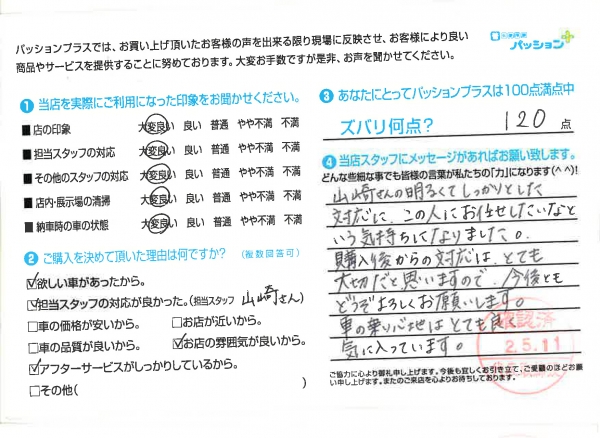 パッションプラスでは、お買い上げ頂いたお客様の声を出来る限り現場に反映させ、お客様により良い
商品やサービスを提供することに努めております。大変お手数ですが是非、お声を聞かせてください。
パッション
1 当店を実際にご利用になった印象をお聞かせください。
■店の印象 大変良い 良い 普通 やや不満 不満
■担当スタッフの対応 大変良い 良い 普通 やや不満 不満
■その他のスタッフの対応 大変良い 良い 普通 やや不満 不満
■店内・展示場の清掃 大変良い 良い 普通 やや不満 不満
■納車時の車の状態 大変良い 良い 普通 やや不満 不満
2 ご購入を決めて頂いた理由は何ですか? (複数回答可)
☑欲しい車があったから。
☑担当スタッフの対応が良かった。(担当スタッフ 山崎さん)
□車の価格が安いから。 □お店が近いから。
□車の品質が良いから。 ☑お店の雰囲気が良いから。
☑アフターサービスがしっかりしているから。
□その他( )
3 あなたにとってパッションプラスは100点満点中
ズバリ何点? 120 点
4 当店スタッフにメッセージがあればお願い致します。
どんな些細な事でも皆様の言葉が私たちの「力」になります(^^)!
山崎さんの明るくてしっかりとした
対応に、この人にお任せしたいなと
いう気持ちになりました。
購入後からの対応は、とても
大切だと思いますので、今後とも
どうぞよろしくお願いします。
車の乗り心地はとても良く
気に入っています。
確認済
2.5.11
ご協力に心より御礼申し上げます。今後も宜しくお引き立て、ご愛顧のほどお願
い申し上げます。またのご来店を心よりお待ちしております。